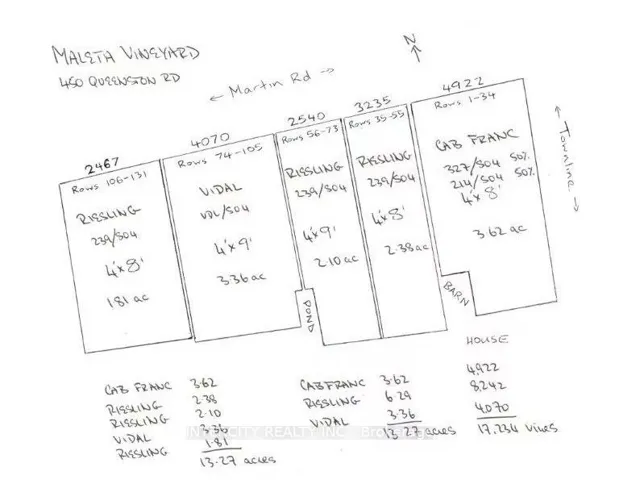 MALETA VINEYARD
450 QUEENSTON RD
N
← Martin Rd →
2467
Rows 106-131
RIESLING
239/SO4
4'x8'
1.81 ac
4070
Rows 74-105
VIDAL
VDL/SO4
4'x9'
3.36 ac
2540
Rows 56-73
RIESLING
239/SO4
4'x9'
2.10 ac
3235
Rows 35-55
RIESLING
239/SO4
4'x8'
2.38 ac
4922
Rows 1-34
CAB FRANC
327/SO4 50%
214/SO4 50%
4'x8'
3.62 ac
← Townline →
POND
BARN
HOUSE
CAB FRANC 3.62
RIESLING 2.38
RIESLING 2.10
VIDAL 3.36
RIESLING 1.81
13.27 acres
CAB FRANC 3.62
RIESLING 6.29
VIDAL 3.36
13.27 acres
4,922
8,242
4,070
17,234 vines
CITY REALTY INC. Brokerage